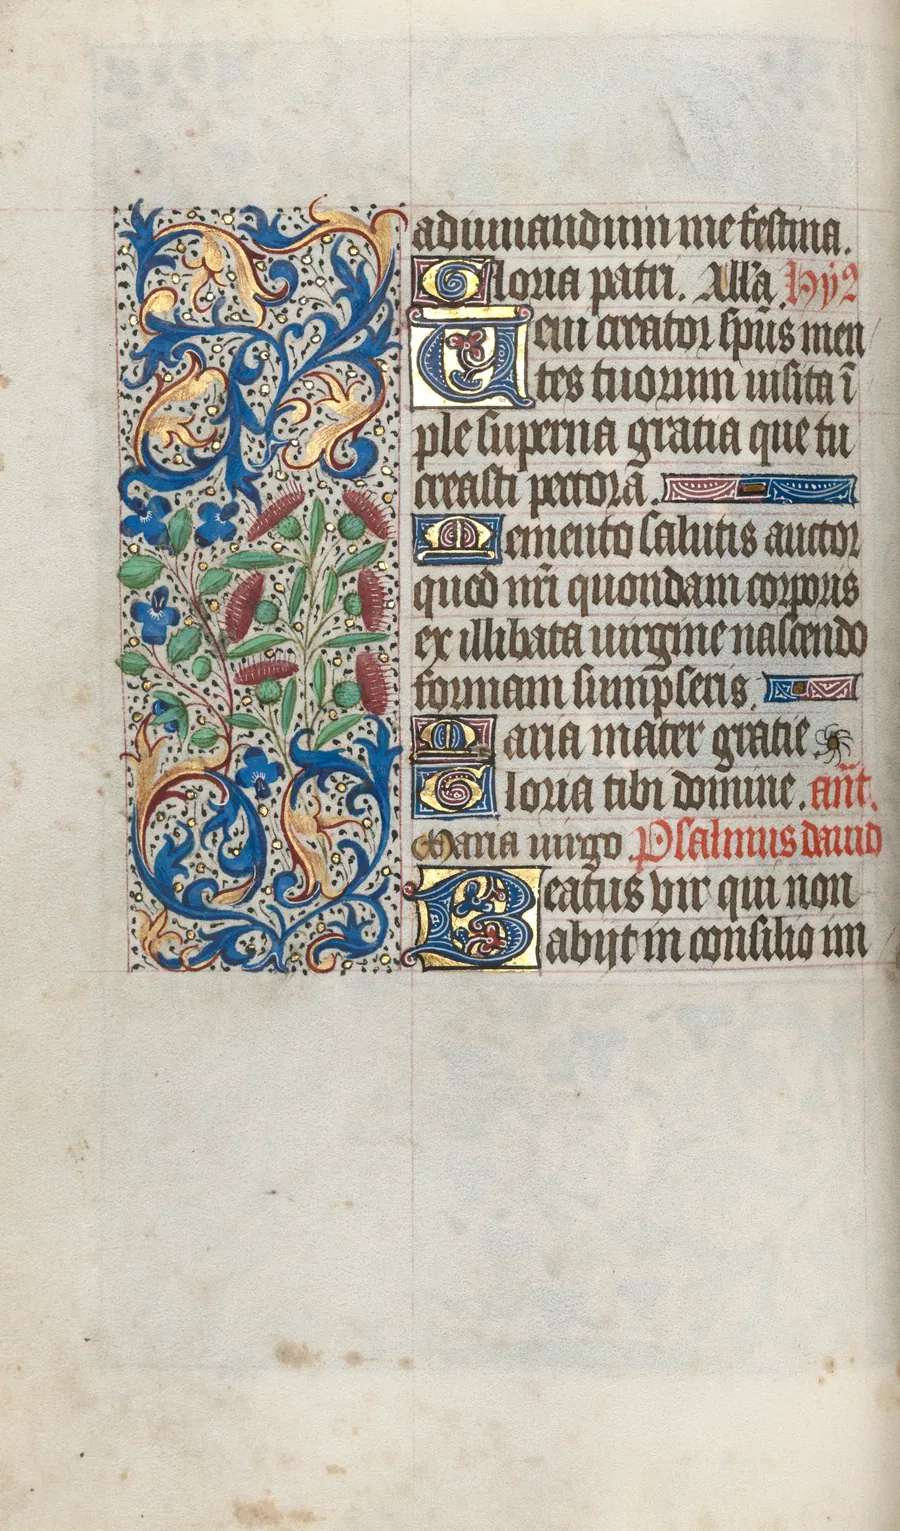 adiuuandum me festina.
Gloria patri. Alla. Hỹ
Ueni creator sp̃us men
tes tuorum uisita ĩ
ple superna gratia que tu
creasti pectorã.
Memento salutis auctor
quod nr̃i quondam corporis
ex illibata uirgine nascendo
formam sumpseris.
Maria mater gratie
Gloria tibi domine. añt.
Maria uirgo Psalmus dauid
Beatus vir qui non
abijt in consilio im